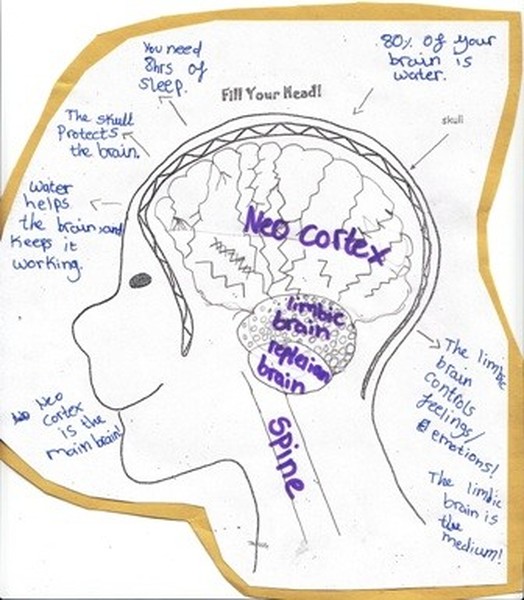 You need
8hrs of
sleep.
80% of your
brain is
water.
Fill Your Head!
skull
The skull
Protects
the brain.
Water
helps
the brain and
keeps it
working.
Neo cortex
limbic
brain
repleian
brain
Spine
The limbic
brain
controls
feelings/
emotions!
Neo
Cortex
is the
main brain!
The limbic
brain is
the
medium!